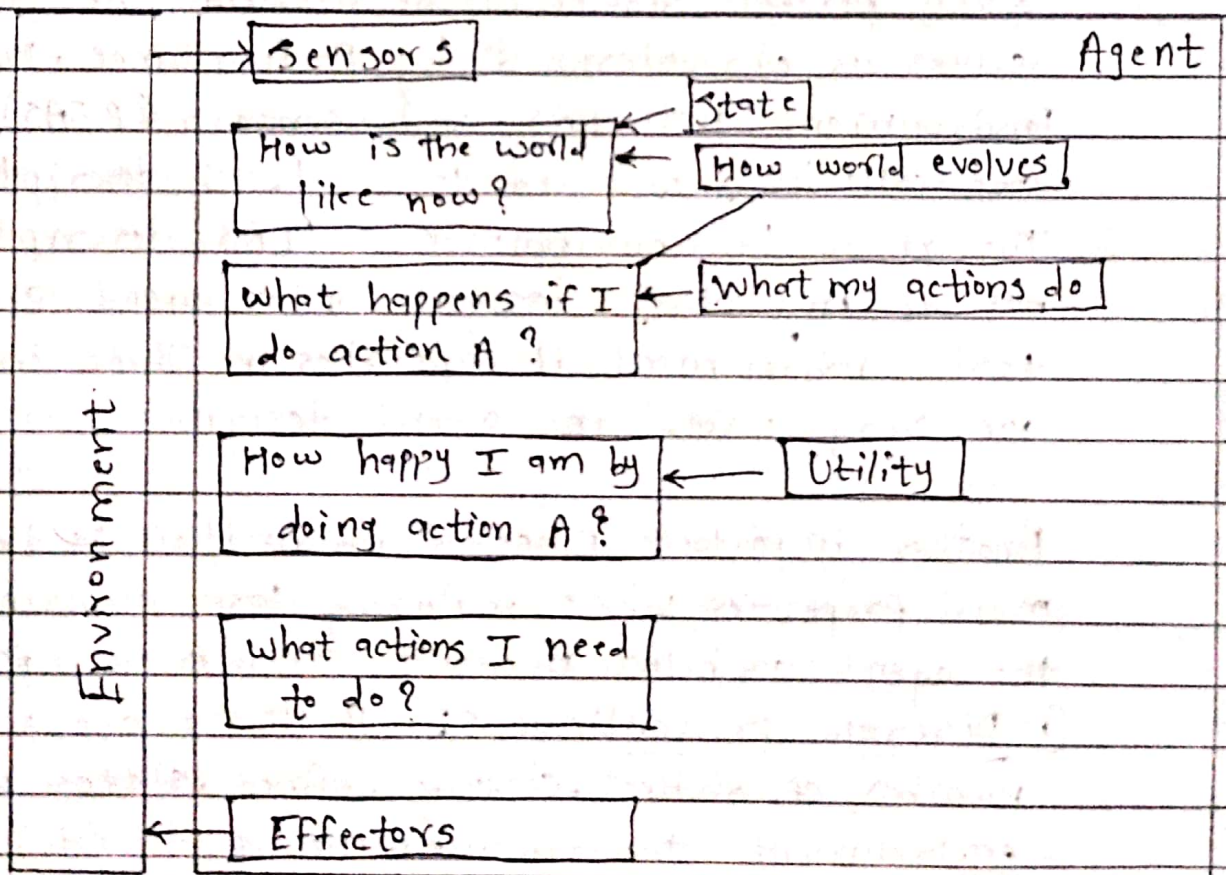 Sensors
Agent
State
How is the world
like now?
How world evolves
What happens if I
do action A?
What my actions do
How happy I am by
doing action A?
Utility
Environment
What actions I need
to do?
Effectors